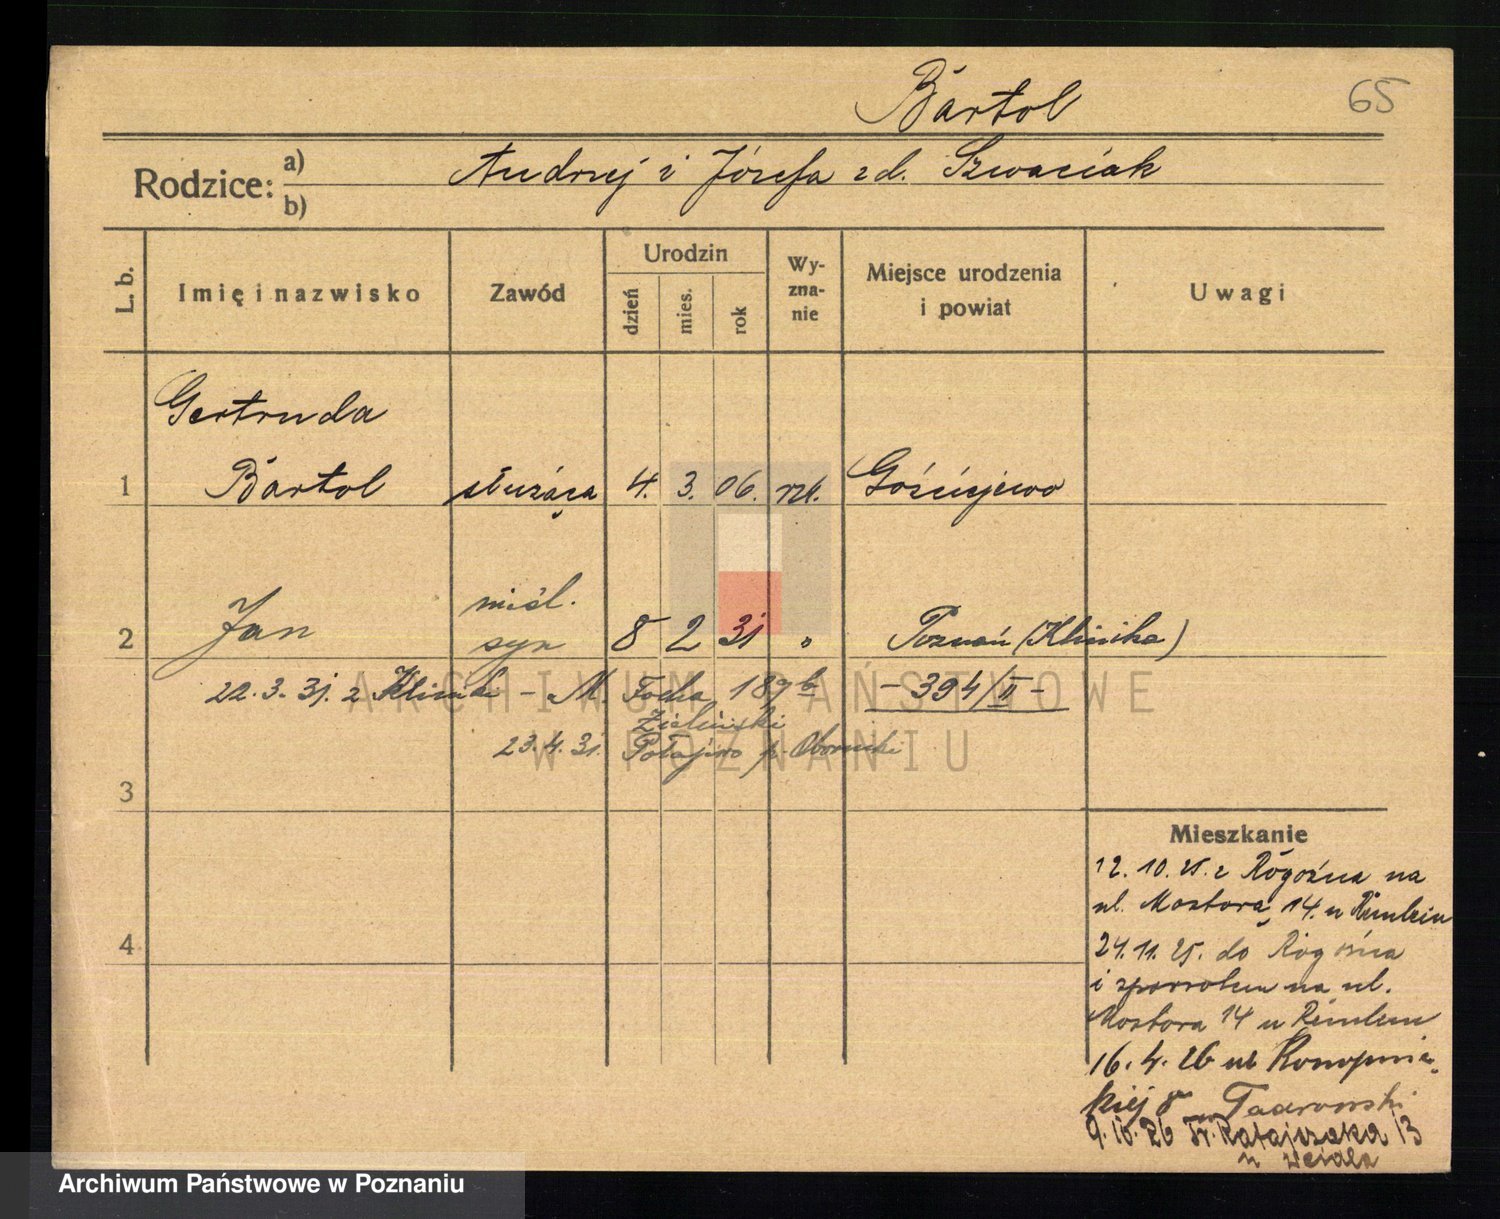 Bartol
65
Rodzice:
a)
b)
Andrzej i Józefa z d. Szwaciak
L. b.
Imię i nazwisko
Zawód
Urodzin
dzień
mies.
rok
Wy-
zna-
nie
Miejsce urodzenia
i powiat
Uwagi
Gertruda
1 Bartol służąca 4. 3. 06. rzk. Gościejewo
nieśl.
2 Jan syn 8 2 31 " Poznań (Klinika)
22.3.31. z Kliniki - M. Focha 189b - 394/II -
Zieliński
23.4.31. Połajewo p. Obornicki
3
4
ARCHIWUM PAŃSTWOWE
W POZNANIU
Mieszkanie
12.10.25. z Rogoźna na
ul. Mostora 14. u
24.11.25. do Rogoźna
i zpowrotem na ul.
Mostora 14 u
16.4.26 ul Konopnic-
kiej 8
9.10.26 Fr. Ratajczaka 13
u
Archiwum Państwowe w Poznaniu